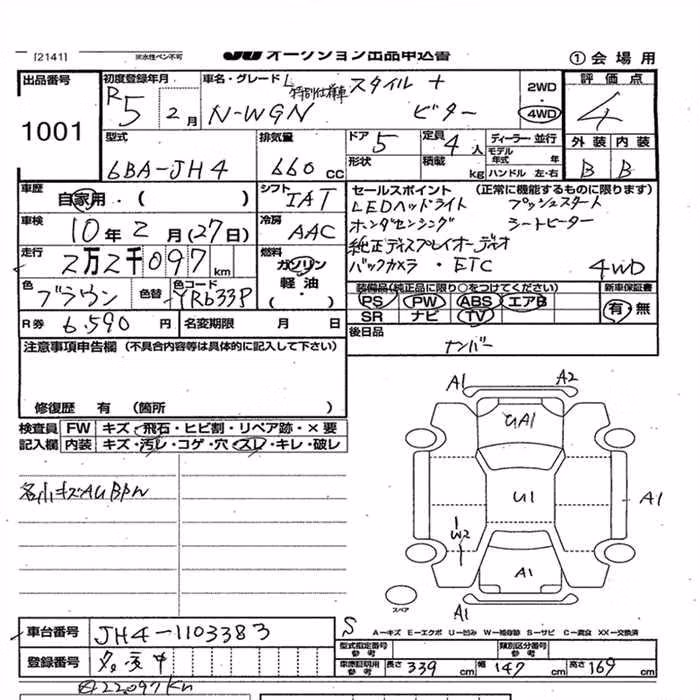 [2141] ※水性ペン不可 JU オークション出品申込書 ① 会場用
出品番号 1001
初度登録年月 R5 2月
車名・グレード N-WGN L 特別仕様車 スタイル+ ビター
2WD 4WD
評価点 4
外装 内装
B B
型式 6BA-JH4
排気量 660 cc
ドア 5 定員 4人
形状 積載 kg
ディーラー・並行
モデル年式 年
ハンドル 左・右
車歴 自家用・( )
シフト IAT
車検 10年2月(27日)
冷房 AAC
走行 2万2千097 km
燃料 ガソリン 軽油・
色 ブラウン 色替 色コード YR633P
R券 6.590 円 名変期限 月 日
セールスポイント (正常に機能するものに限ります)
LEDヘッドライト プッシュスタート
ホンダセンシング シートヒーター
純正ディスプレイオーディオ
バックカメラ・ETC 4WD
装備品(純正品に限り○をつけてください) 新車保証書
PS PW ABS エアB 有・無
SR ナビ TV
後日品 ナンバー
注意事項申告欄 (不具合内容等は具体的に記入して下さい)
修復歴 有 (箇所 )
検査員 FW キズ・飛石・ヒビ割・リペア跡・×要
記入欄 内装 キズ・汚レ・コゲ・穴・スレ・キレ・破レ
A1 A2
UA1
U1
A1
W2
A1
A1
スペア
S
A-キズ E-エクボ U-凹み W-補修跡 S-サビ C-腐食 XX-交換済
車台番号 JH4-1103383
登録番号
型式指定番号 参考 類別区分番号 参考
車庫証明用 参考 長さ 339 cm 幅 147 cm 高さ 169 cm
22097Km